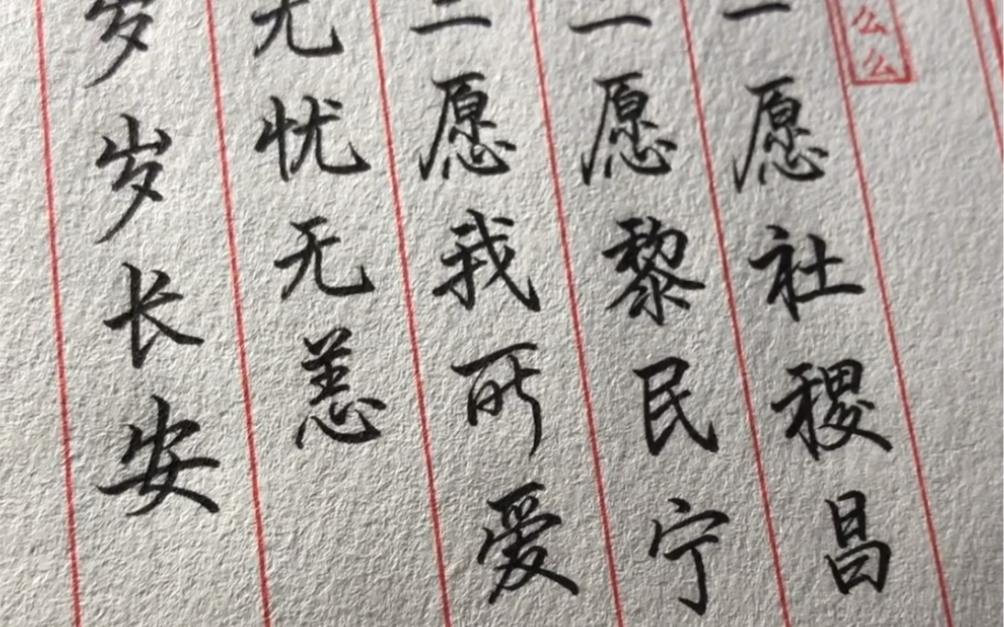 么么
一愿社稷昌
一愿黎民宁
二愿我所爱
无忧无恙
岁岁长安